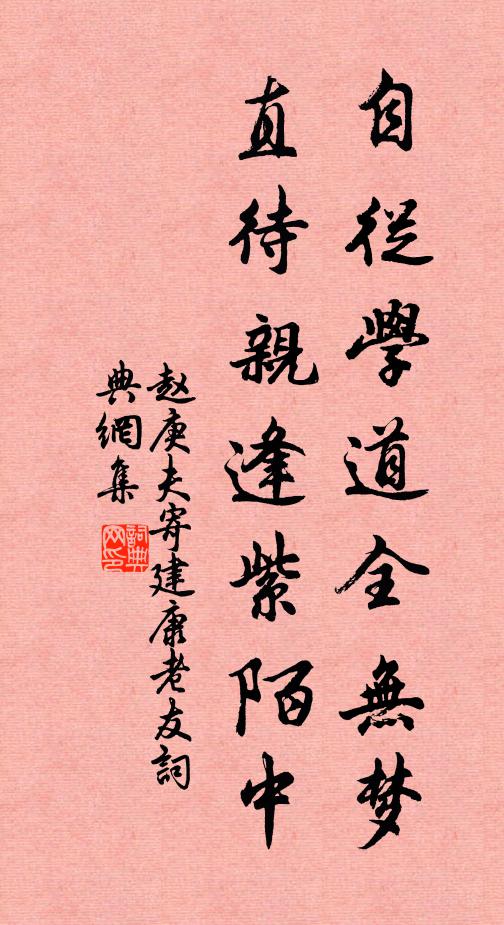 自從學道全無梦
直待親逢紫陌中
赵庚夫寄建康老友詞
典網集
詞典
网印